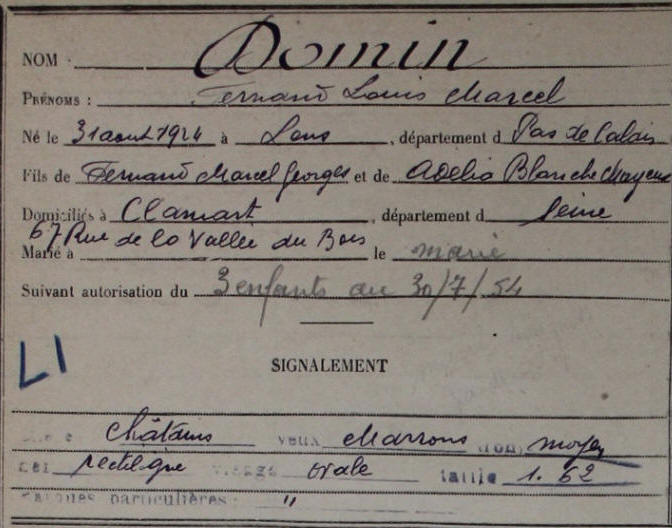 NOM Domin
PRÉNOMS : Fernand Louis Marcel
Né le 31 aout 1924 à Lens, département d Pas de Calais
Fils de Fernand Marcel Georges et de Adelia Blanche
Domiciliés à Clamart, département d Seine
67 Rue de la Vallée du Bois
Marié à le marié
Suivant autorisation du 3 enfants au 30/7/54
SIGNALEMENT
LI
châtains yeux marrons front moyen
nez rectiligne visage ovale taille 1.62
marques particulières : "